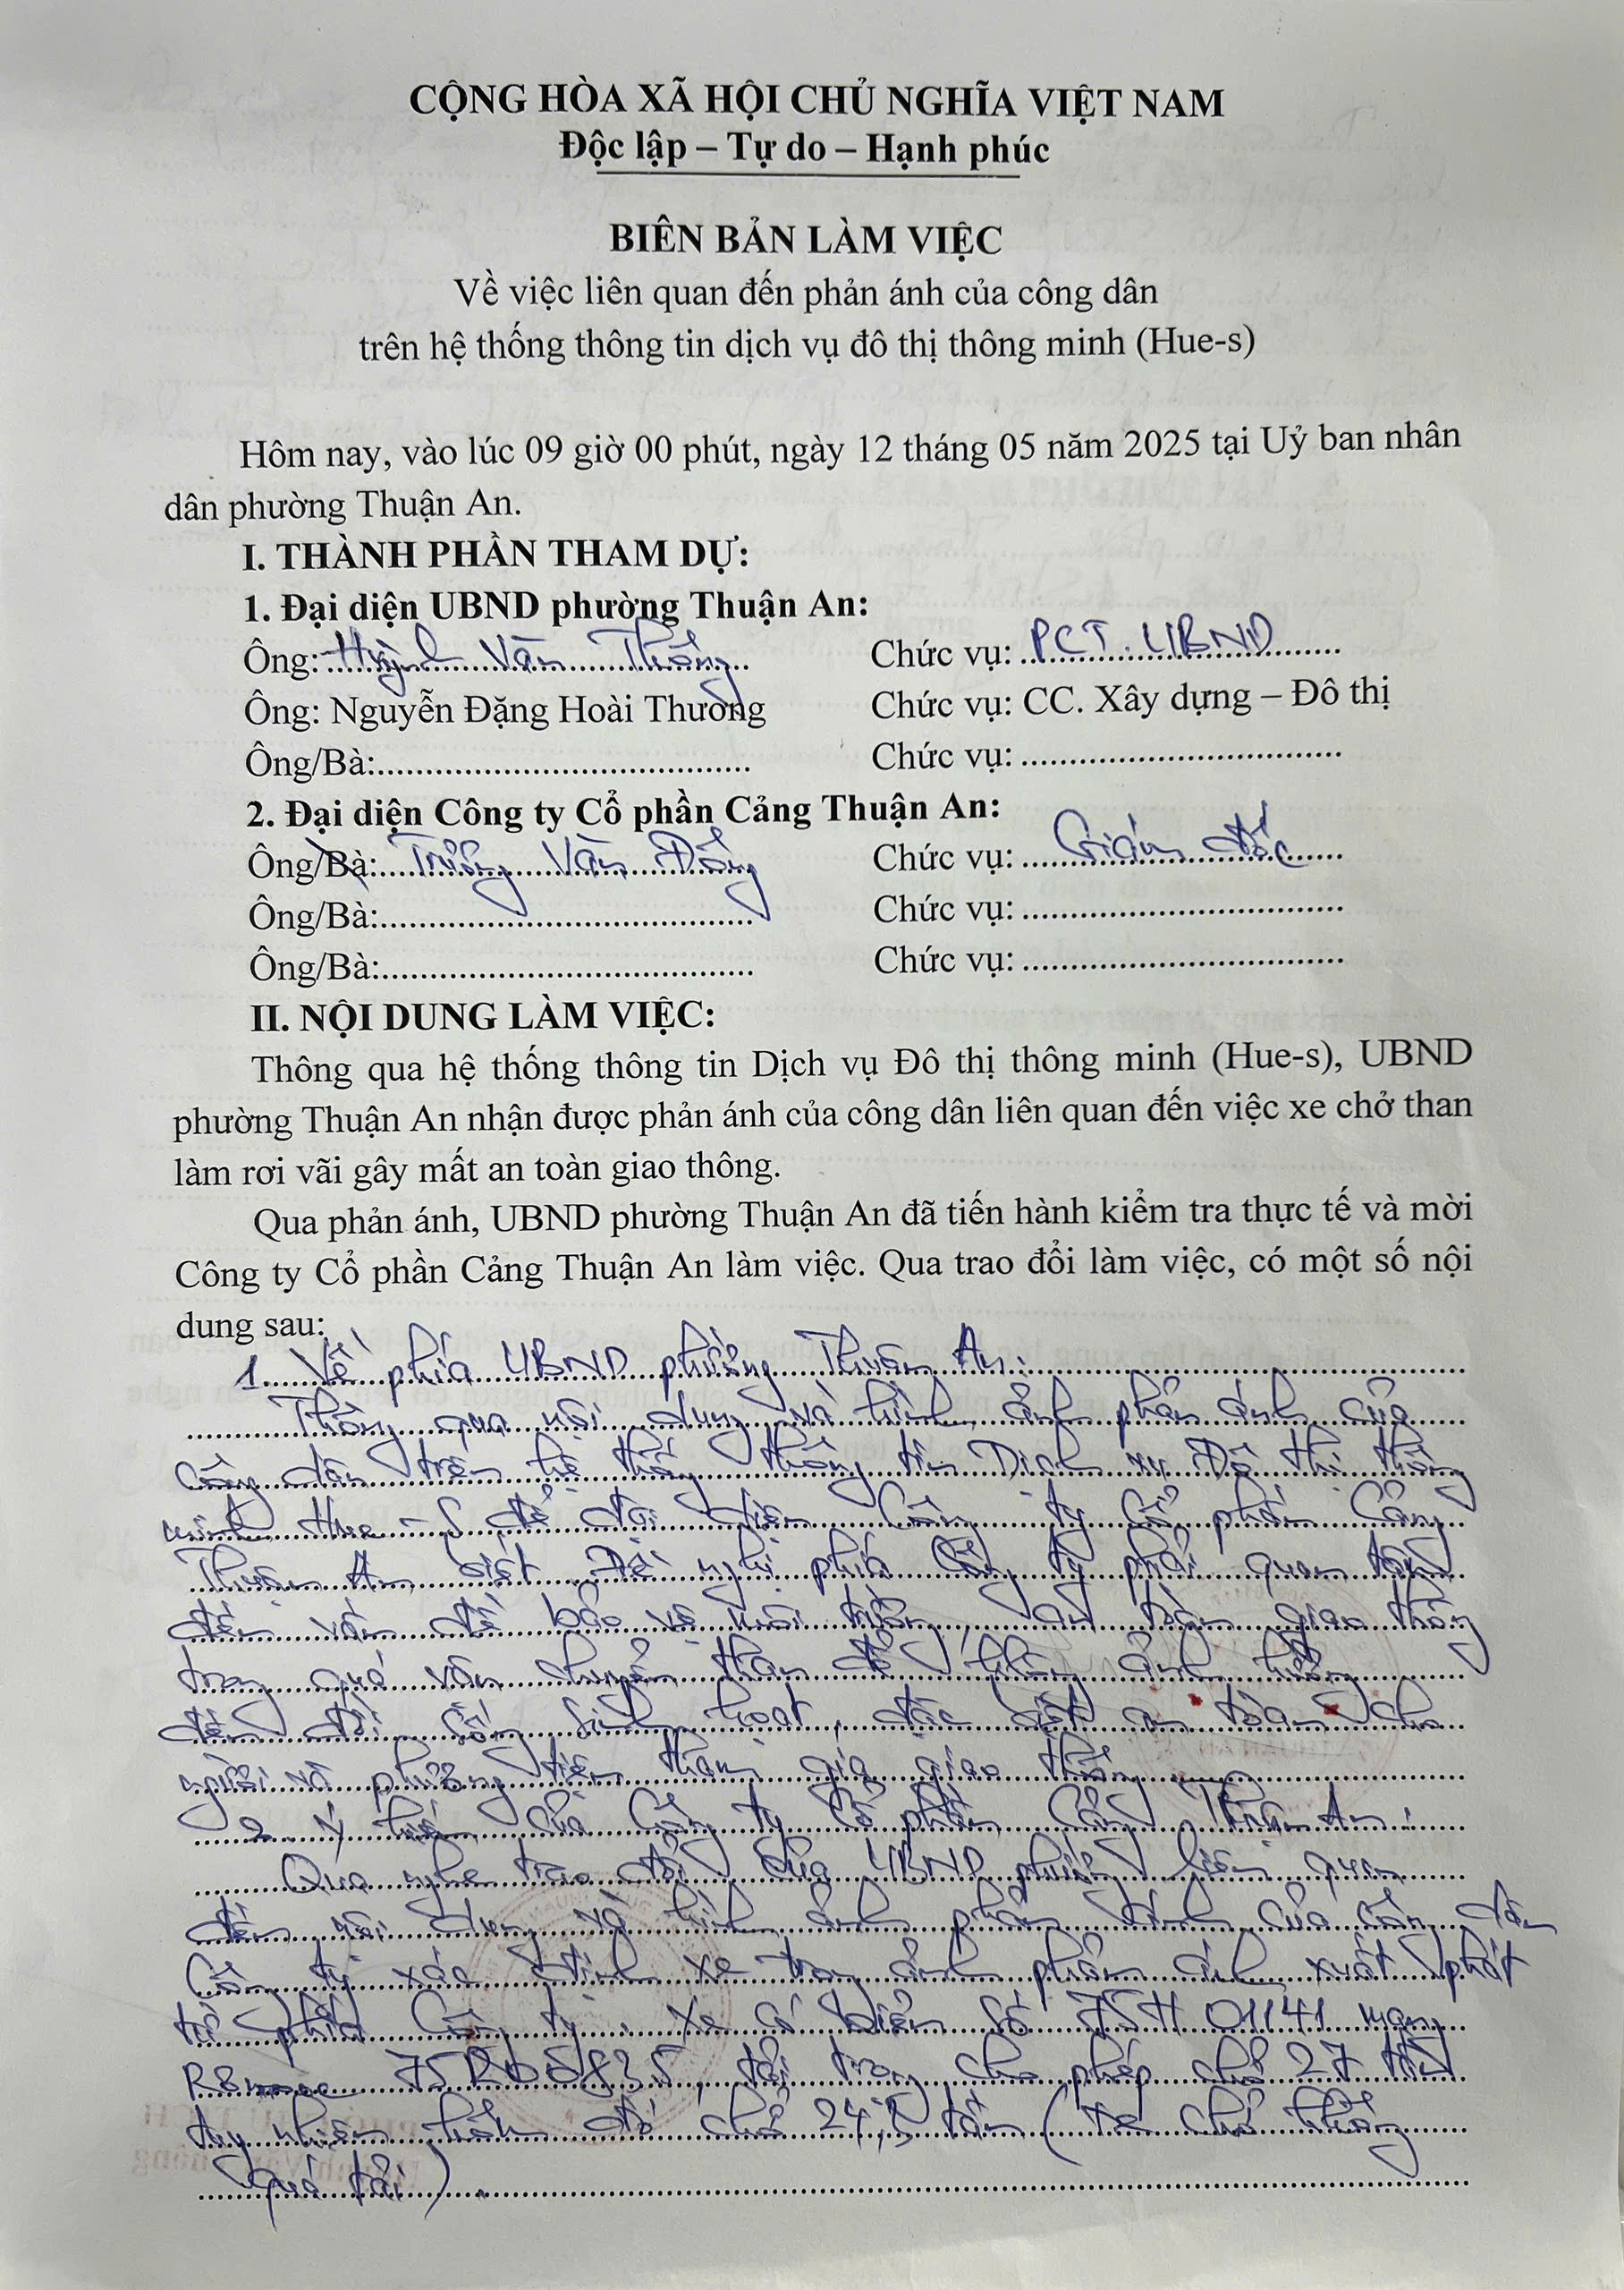 CỘNG HÒA XÃ HỘI CHỦ NGHĨA VIỆT NAM
Độc lập – Tự do – Hạnh phúc
BIÊN BẢN LÀM VIỆC
Về việc liên quan đến phản ánh của công dân
trên hệ thống thông tin dịch vụ đô thị thông minh (Hue-s)
Hôm nay, vào lúc 09 giờ 00 phút, ngày 12 tháng 05 năm 2025 tại Uỷ ban nhân
dân phường Thuận An.
I. THÀNH PHẦN THAM DỰ:
1. Đại diện UBND phường Thuận An:
Ông: Huỳnh Văn Thống Chức vụ: PCT. UBND
Ông: Nguyễn Đặng Hoài Thương Chức vụ: CC. Xây dựng – Đô thị
Ông/Bà: Chức vụ:
2. Đại diện Công ty Cổ phần Cảng Thuận An:
Ông/Bà: Trương Văn Đồng Chức vụ: Giám đốc
Ông/Bà: Chức vụ:
Ông/Bà: Chức vụ:
II. NỘI DUNG LÀM VIỆC:
Thông qua hệ thống thông tin Dịch vụ Đô thị thông minh (Hue-s), UBND
phường Thuận An nhận được phản ánh của công dân liên quan đến việc xe chở than
làm rơi vãi gây mất an toàn giao thông.
Qua phản ánh, UBND phường Thuận An đã tiến hành kiểm tra thực tế và mời
Công ty Cổ phần Cảng Thuận An làm việc. Qua trao đổi làm việc, có một số nội
dung sau:
1. Về phía UBND phường Thuận An:
Thông qua nội dung và hình ảnh phản ánh của
công dân trên hệ thống thông tin Dịch vụ Đô thị thông
minh Hue-S để đại diện Công ty Cổ phần Cảng
Thuận An biết. Đề nghị phía Công ty phải quan tâm
đến vấn đề bảo vệ môi trường, an toàn giao thông
trong quá vận chuyển than để không ảnh hưởng
đến đời sống sinh hoạt, đặc biệt an toàn cho
người và phương tiện tham gia giao thông.
2. Ý kiến của Công ty Cổ phần Cảng Thuận An:
Qua nghe trao đổi của UBND phường liên quan
đến nội dung và hình ảnh phản ánh của công dân
Công ty xác định xe trong ảnh phản ánh xuất phát
từ phía Công ty. Xe có biển số 75H 01141 mang
75R00835, tải trọng cho phép chở 27 tấn
tuy nhiên hôm đó chở 24,5 tấn (xe chở không
quá tải).